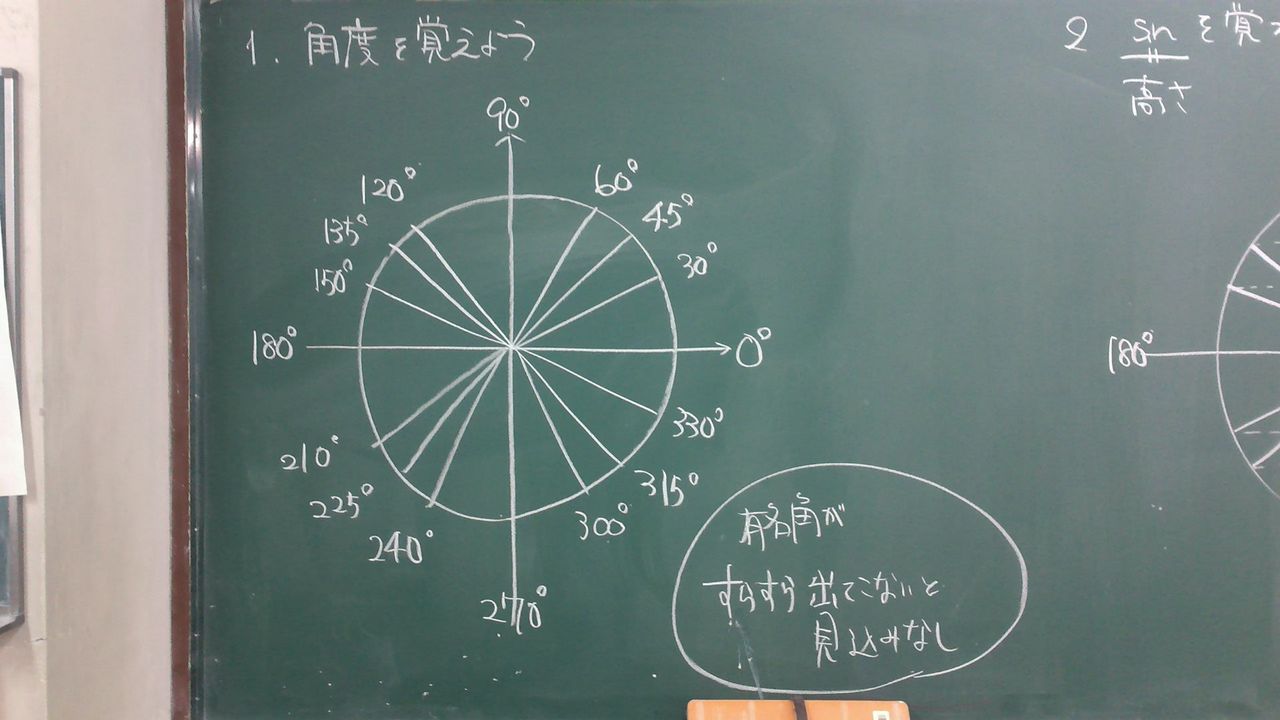 1. 角度を覚えよう
90°
120°
60°
135°
45°
150°
30°
180°
0°
210°
330°
225°
315°
240°
300°
270°
有名角が
すらすら出てこないと
見込みなし
2 sinを覚え
高さ
180°